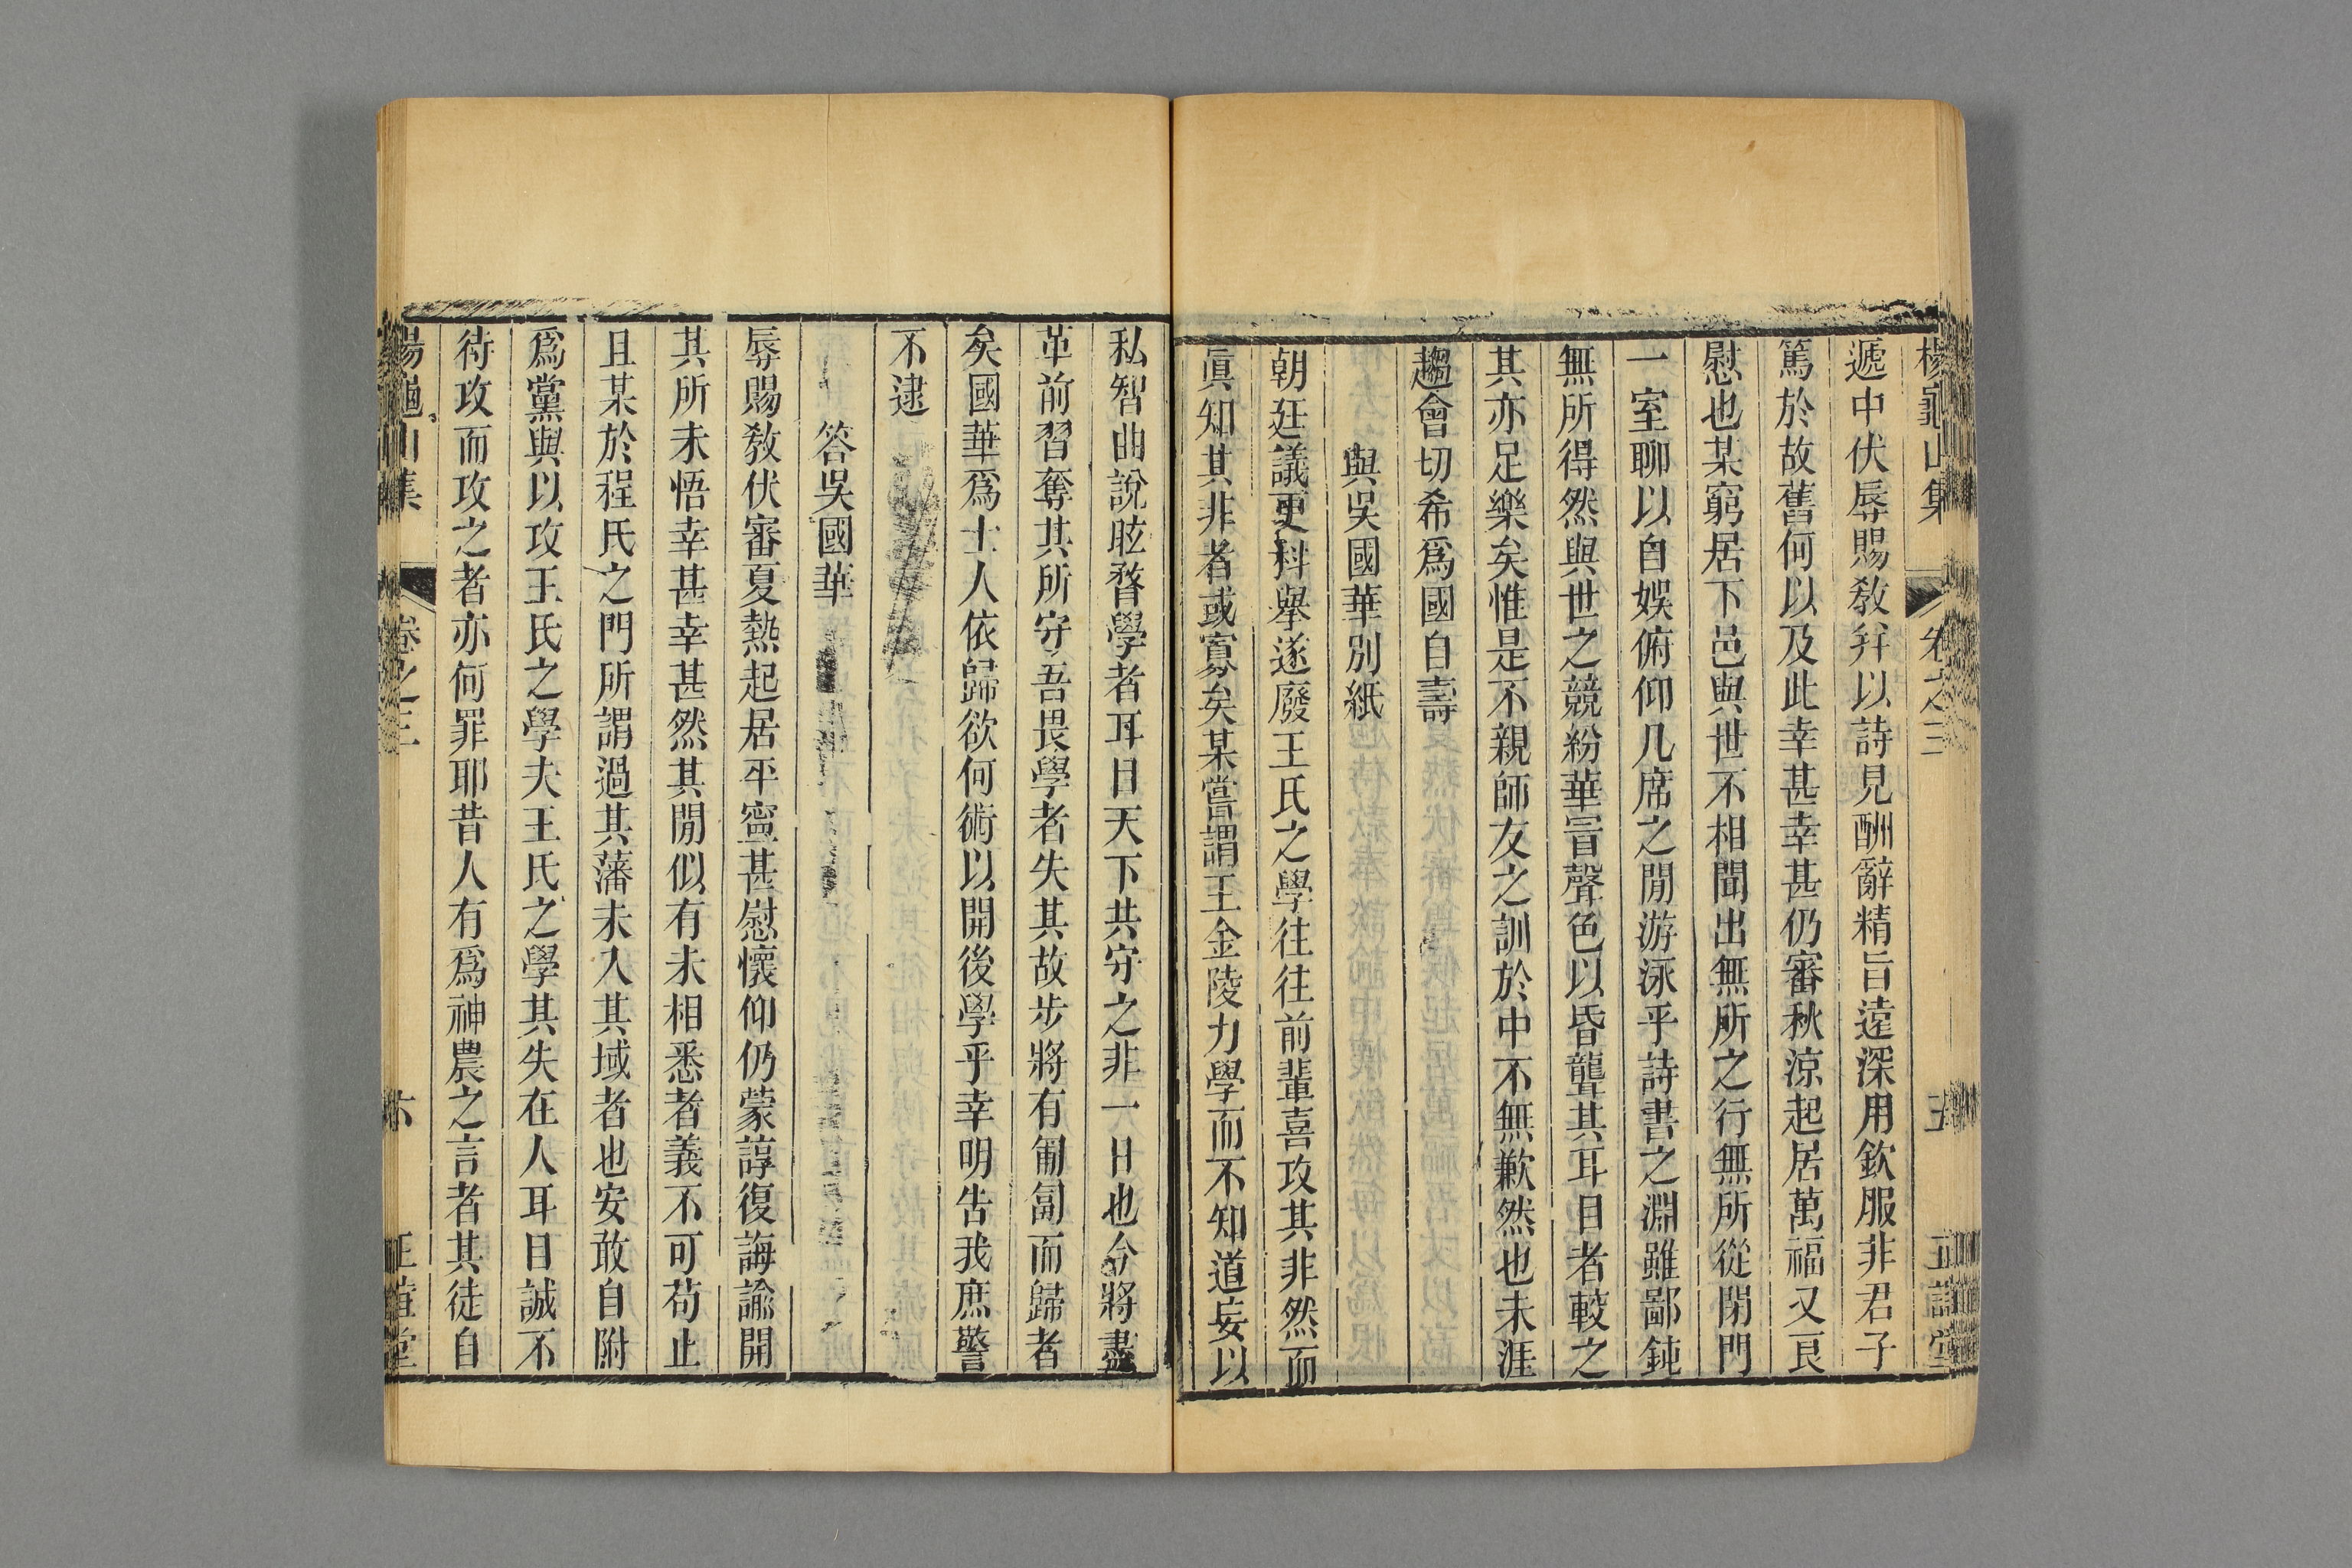 楊龜山集 卷之三 五 正誼堂
遞中伏辱賜敎幷以詩見酬辭精旨遠深用欽服非君子
篤於故舊何以及此幸甚幸甚仍審秋涼起居萬福又良
慰也某窮居下邑與世不相聞出無所之行無所從閉門
一室聊以自娛俯仰几席之閒游泳乎詩書之淵雖鄙鈍
無所得然與世之競紛華冒聲色以昏聾其耳目者較之
其亦足樂矣惟是不親師友之訓於中不無歉然也未涯
趨會切希爲國自壽
與吳國華別紙
朝廷議更科舉遂廢王氏之學往往前輩喜攻其非然而
眞知其非者或寡矣某嘗謂王金陵力學而不知道妄以
私智曲說眩瞀學者耳目天下共守之非一日也今將盡
革前習奪其所守吾畏學者失其故步將有匍匐而歸者
矣國華爲士人依歸欲何術以開後學乎幸明告我庶警
不逮
答吳國華
辱賜敎伏審夏熱起居平寧甚慰懷仰仍蒙諄復誨諭開
其所未悟幸甚幸甚然其閒似有未相悉者義不可苟止
且某於程氏之門所謂過其藩未入其域者也安敢自附
爲黨與以攻王氏之學夫王氏之學其失在人耳目誠不
待攻而攻之者亦何罪耶昔人有爲神農之言者其徒自
楊龜山集 卷之三 六 正誼堂